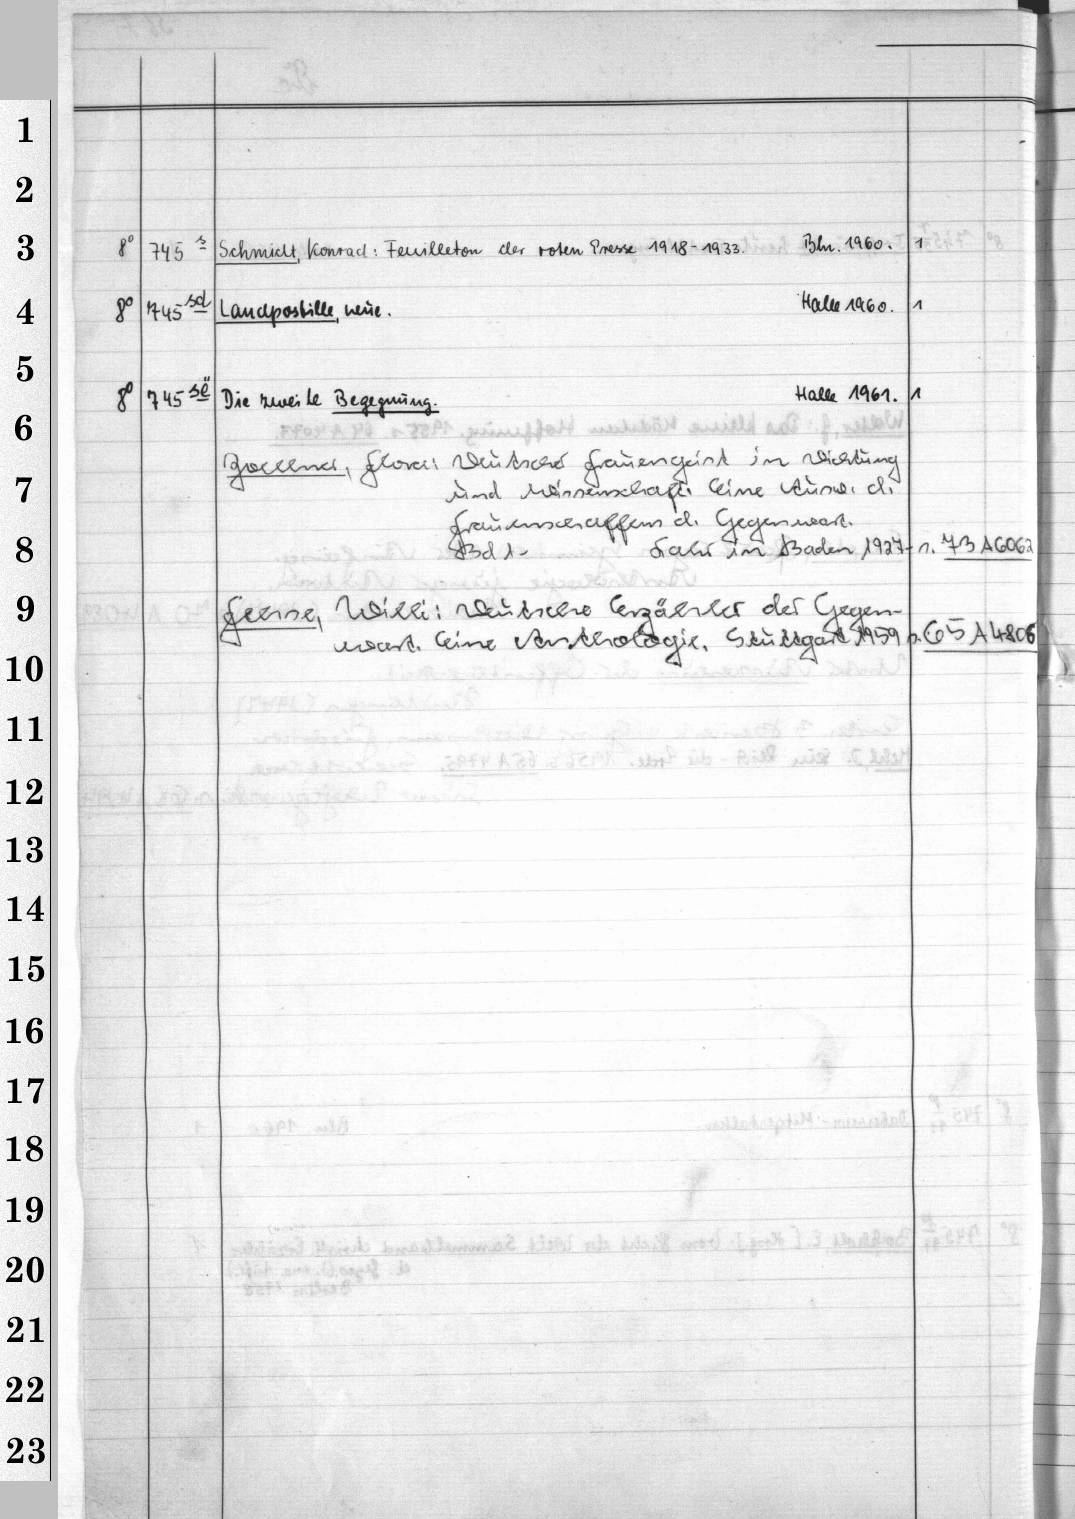 1
2
3
8° 745 s Schmidt, Konrad: Feuilleton der roten Presse 1918-1933. Bln. 1960. 1
4
8° 745 sd Landpostille, neue. Halle 1960. 1
5
8° 745 së Die zweite Begegnung. Halle 1961. 1
6
Flora: Deutscher Frauengeist in Dichtung
7
und Wissenschaft. Eine Ausw. d.
Frauenschaffens d. Gegenwart.
8
Bd 1- Lahr in Baden 1927- s. 73 A 6062
9
Fehse, Willi: Deutsche Erzähler der Gegen-
wart. Eine Anthologie. Stuttgart 1959 s. 65 A 4806
10
11
12
13
14
15
16
17
18
19
20
21
22
23